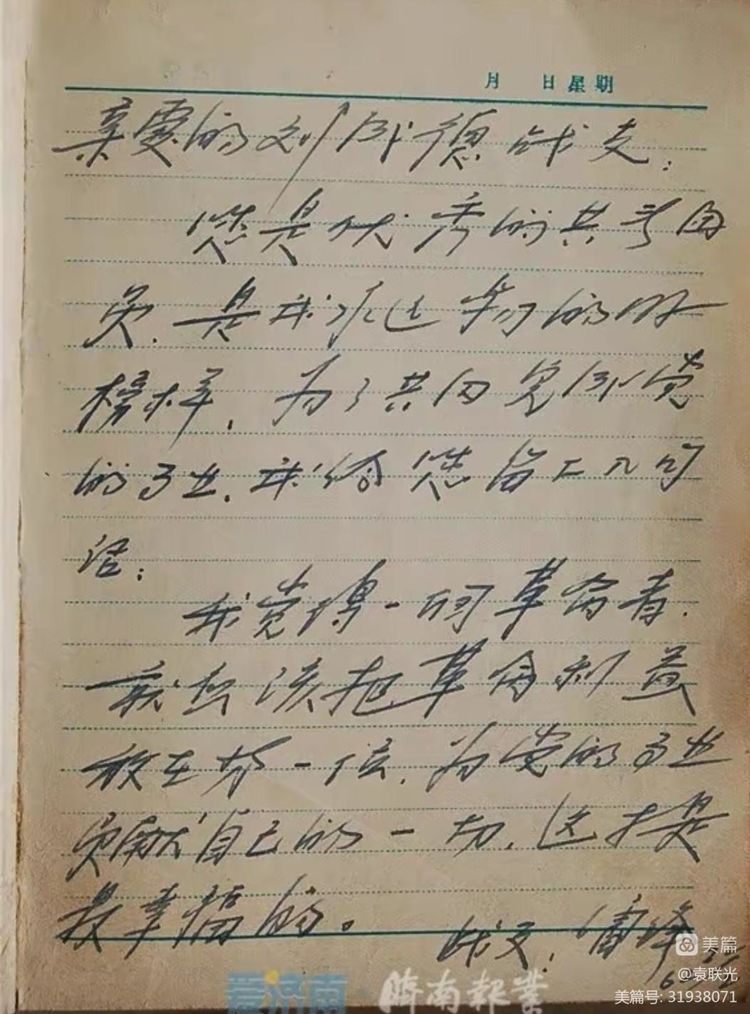 月 日 星期
亲爱的刘成德战友:
您是优秀的共产团
员,是我永远学习的好
榜样,为了共同完成党
的事业,我给您留上几句
话:
我觉得一个革命者,
就应该把革命利益
放在第一位,为党的事业
贡献自己的一切,这才是
最幸福的。
战友:雷锋
爱济南·济南报业
美篇
@袁联光
美篇号: 31938071